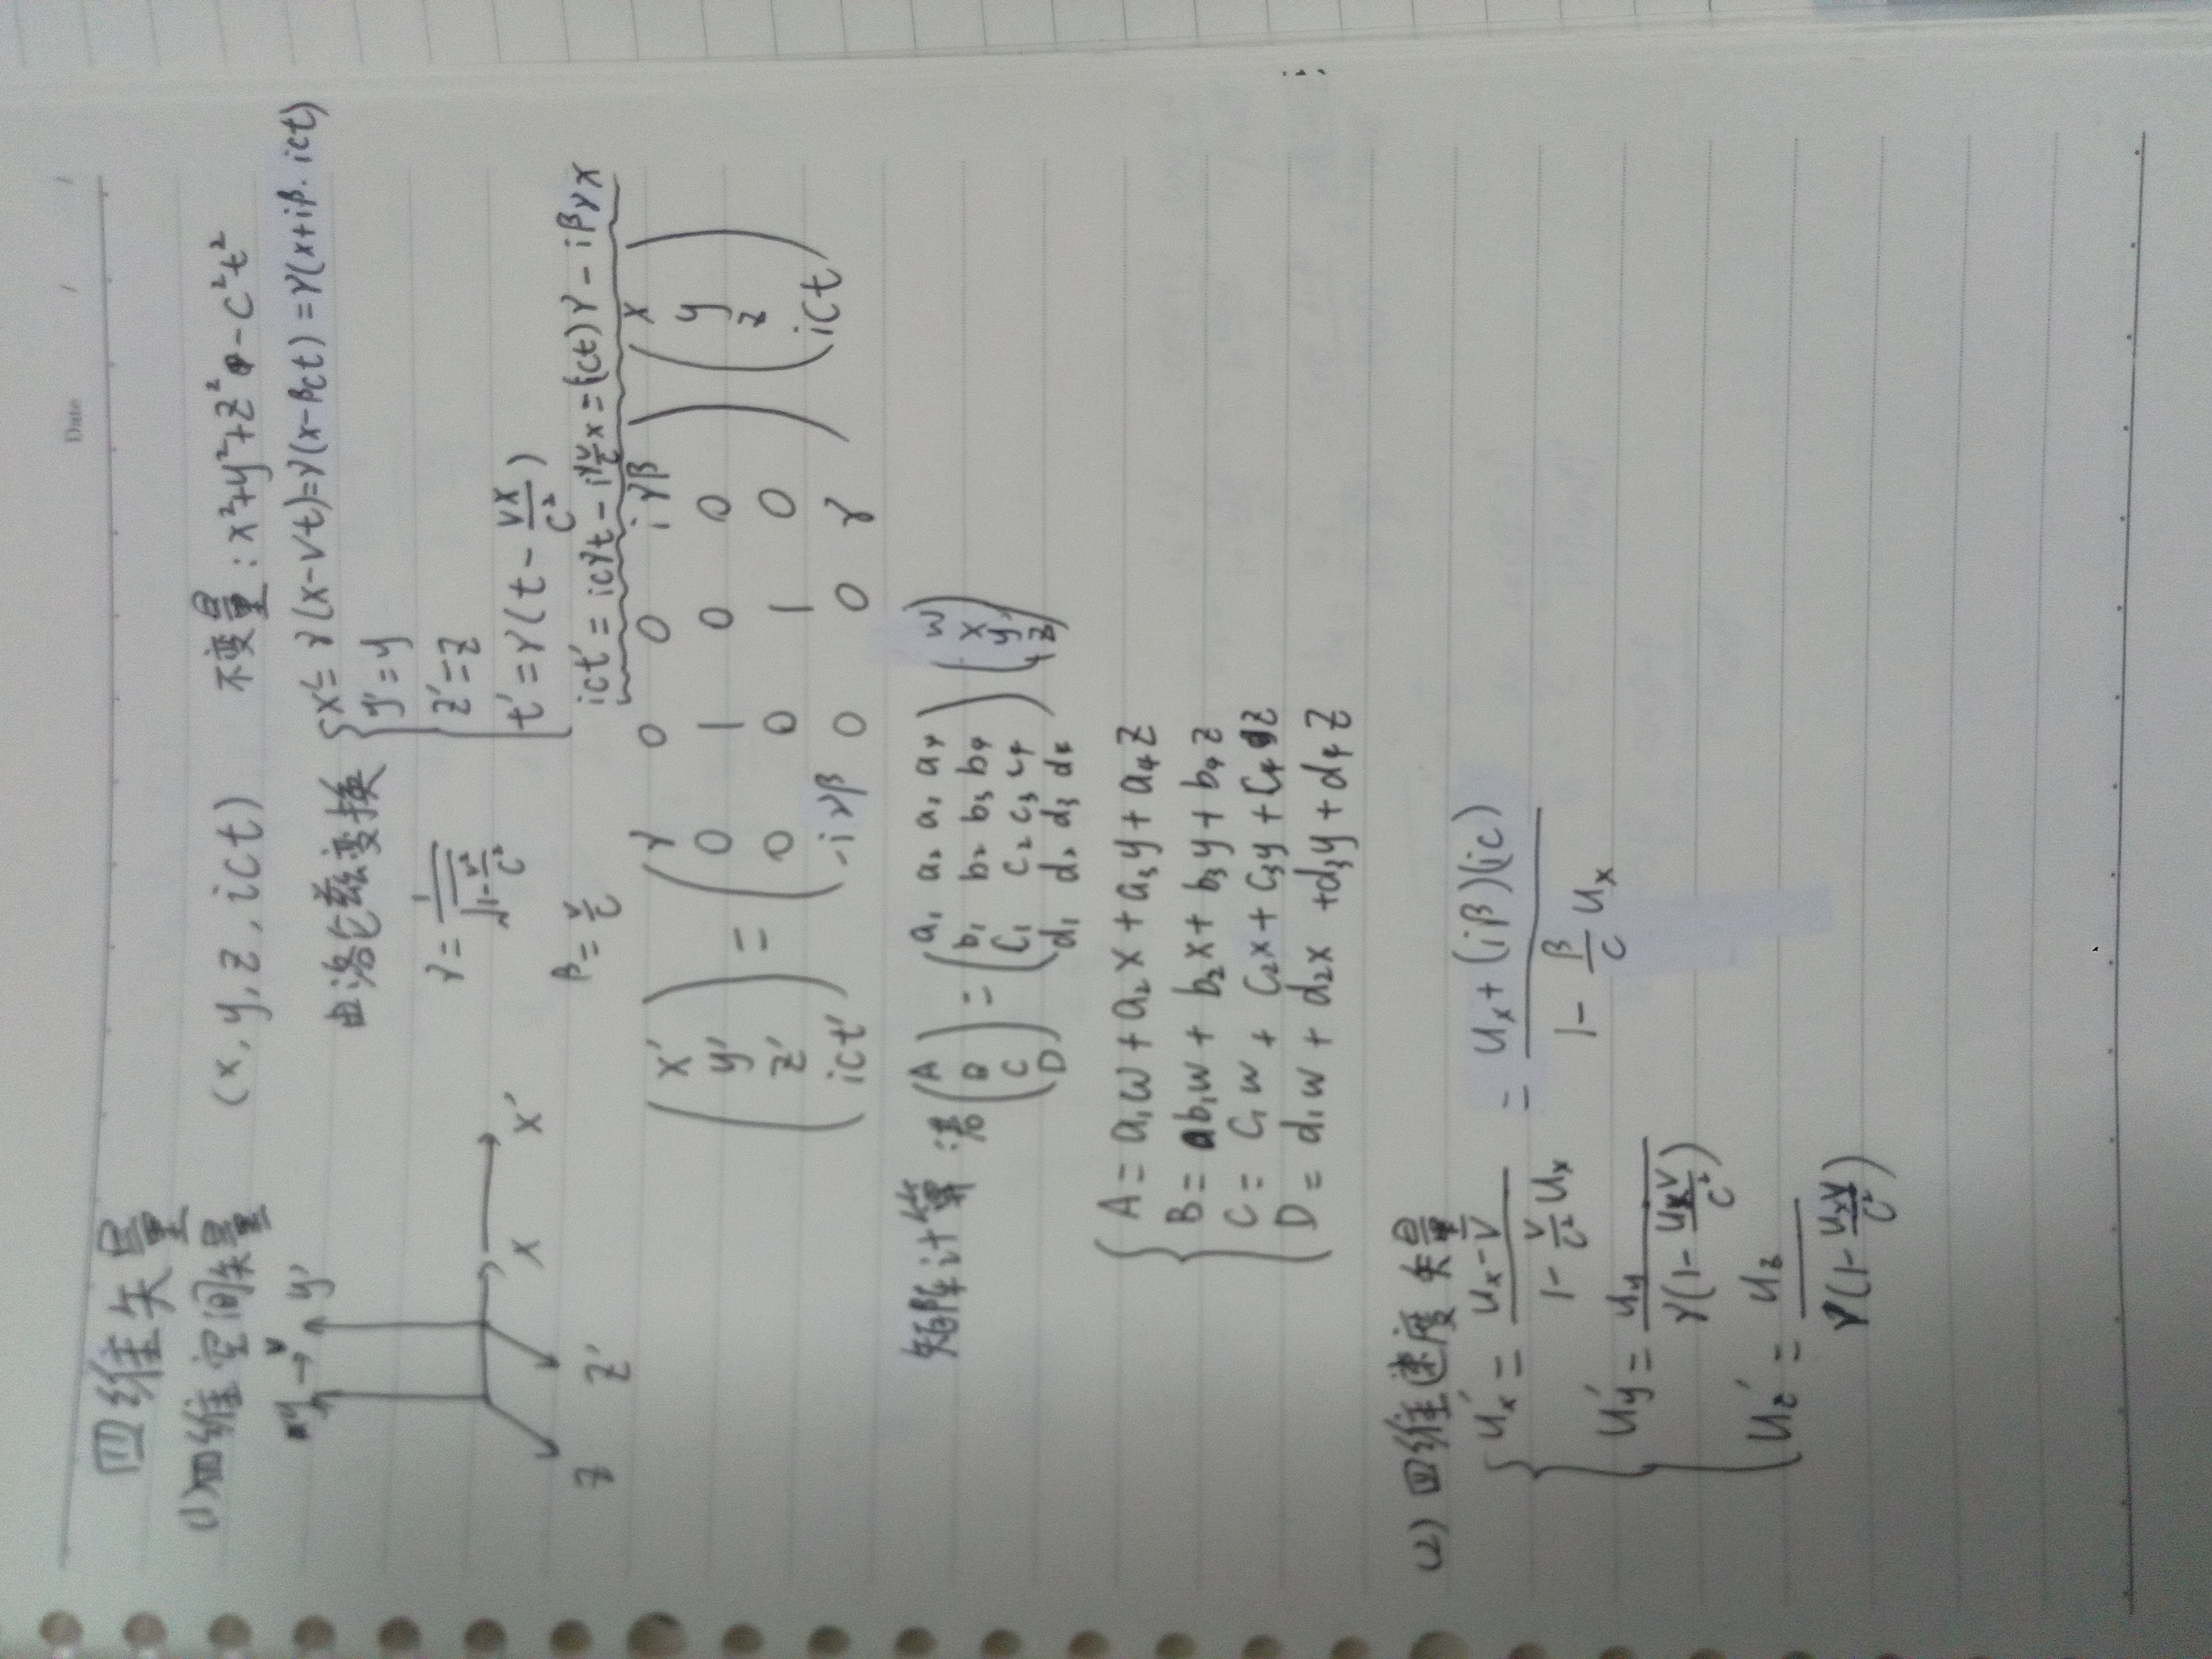 Date / /
四维矢量
(1) 四维空间矢量 (x, y, z, ict) 不变量: x²+y²+z²-c²t²
y → v y'
x x'
z z'
由洛伦兹变换 { x' = γ(x-vt) = γ(x-βct) = γ(x+iβ·ict)
y' = y
γ = 1/√(1-v²/c²) z' = z
t' = γ(t - vx/c²)
β = v/c ict' = icγt - iγ v/c x = (ict)γ - iβγx
( x' ) = ( γ 0 0 iγβ ) ( x )
( y' ) ( 0 1 0 0 ) ( y )
( z' ) ( 0 0 1 0 ) ( z )
( ict' ) ( -iγβ 0 0 γ ) ( ict )
矩阵计算: 若 ( A ) = ( a₁ a₂ a₃ a₄ ) ( w )
( B ) ( b₁ b₂ b₃ b₄ ) ( x )
( C ) ( c₁ c₂ c₃ c₄ ) ( y )
( D ) ( d₁ d₂ d₃ d₄ ) ( z )
{ A = a₁w + a₂x + a₃y + a₄z
B = b₁w + b₂x + b₃y + b₄z
C = c₁w + c₂x + c₃y + c₄z
D = d₁w + d₂x + d₃y + d₄z
(2) 四维速度矢量
{ u'x = (ux - v)/(1 - v/c² ux) = (ux + (iβ)(ic))/(1 - β/c ux)
u'y = uy/γ(1 - uxv/c²)
uz' = uz/γ(1 - uxv/c²)